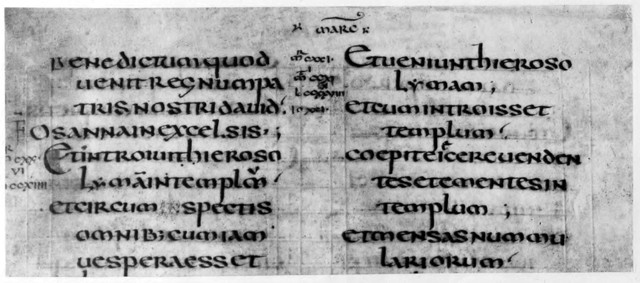 MARC
BENEDICTUMQUOD
UENITREGNUMPA
TRISNOSTRIDAUID·
OSANNAINEXCELSIS·;
ETINTROIUITHIEROSO
LYMĀINTEMPLŪ
ETCIRCUMSPECTIS
OMNIB;CUMIAM
UESPERAESSET
ETUENIUNTHIEROSO
LYMAM;
ETCUMINTROISSET
TEMPLUM
COEPITEICEREUENDEN
TESETEMENTESIN
TEMPLUM;
ETMENSASNUMMU
LARIORUM